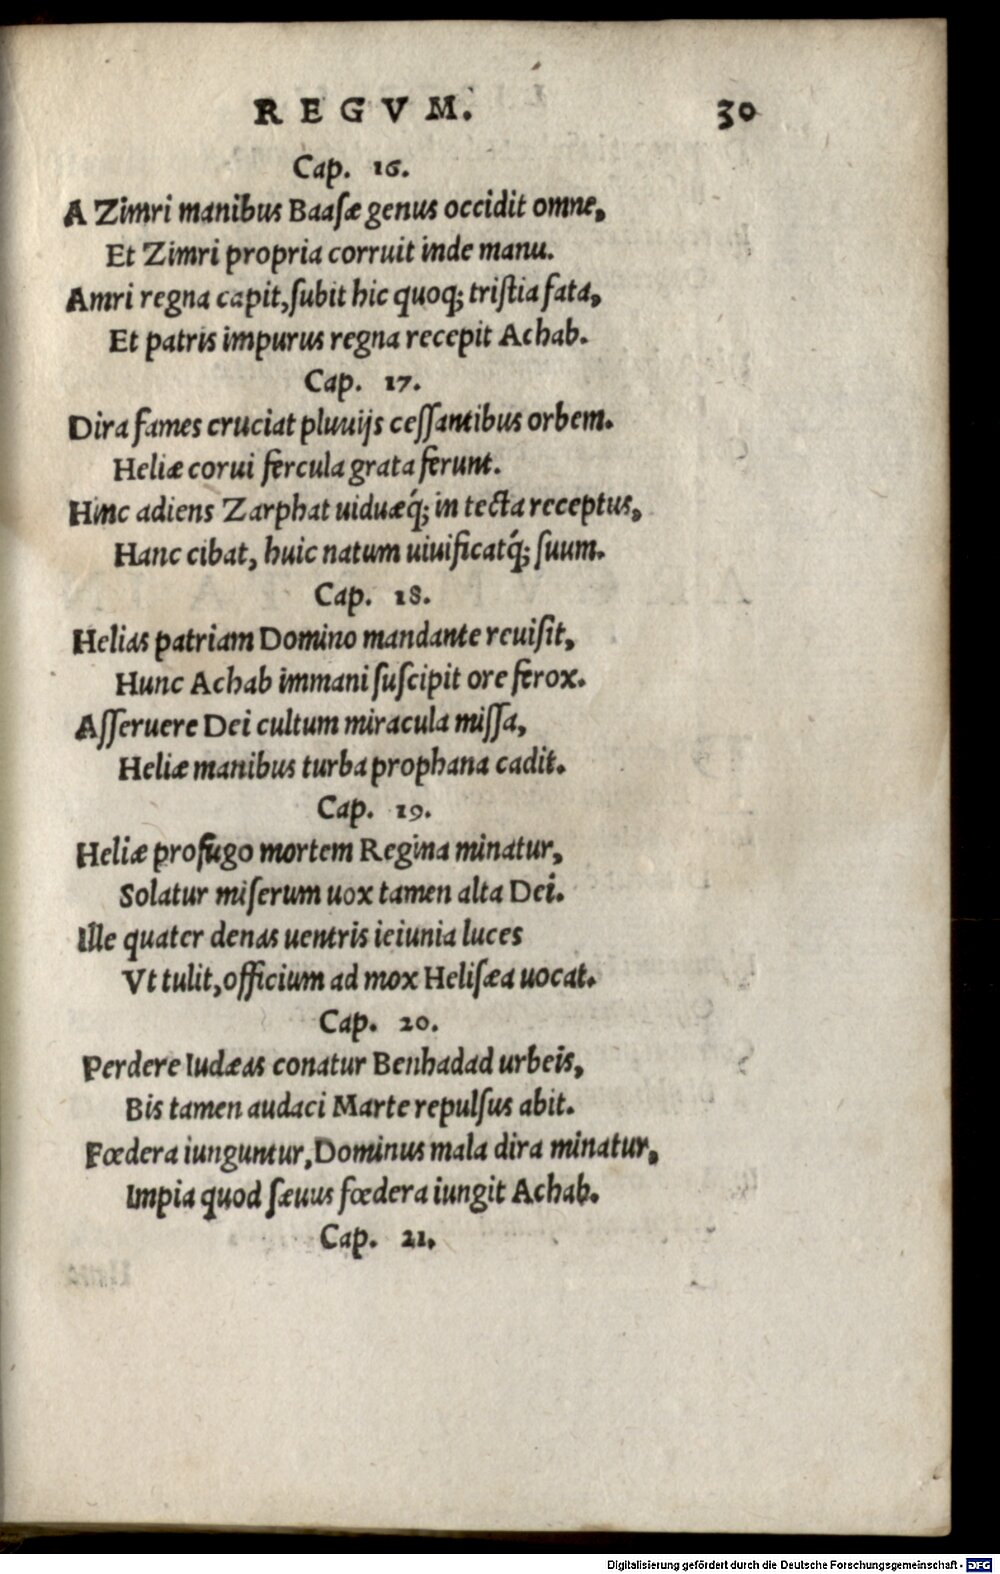 REGVM. 30
Cap. 16.
A Zimri manibus Baaſæ genus occidit omne,
Et Zimri propria corruit inde manu.
Amri regna capit, ſubit hic quoq; triſtia fata,
Et patris impurus regna recepit Achab.
Cap. 17.
Dira fames cruciat pluuijs ceſſantibus orbem.
Heliæ corui fercula grata ferunt.
Hinc adiens Zarphat uiduæq́; in tecta receptus,
Hanc cibat, huic natum uiuificatq́; ſuum.
Cap. 18.
Helias patriam Domino mandante reuiſit,
Hunc Achab immani ſuſcipit ore ferox.
Aſſeruere Dei cultum miracula miſſa,
Heliæ manibus turba prophana cadit.
Cap. 19.
Heliæ profugo mortem Regina minatur,
Solatur miſerum uox tamen alta Dei.
Ille quater denas uentris ieiunia luces
Vt tulit, officium ad mox Heliſæa uocat.
Cap. 20.
Perdere Iudæas conatur Benhadad urbeis,
Bis tamen audaci Marte repulſus abit.
Fœdera iunguntur, Dominus mala dira minatur,
Impia quod ſæuus fœdera iungit Achab.
Cap. 21.
Digitalisierung gefördert durch die Deutsche Forschungsgemeinschaft - DFG